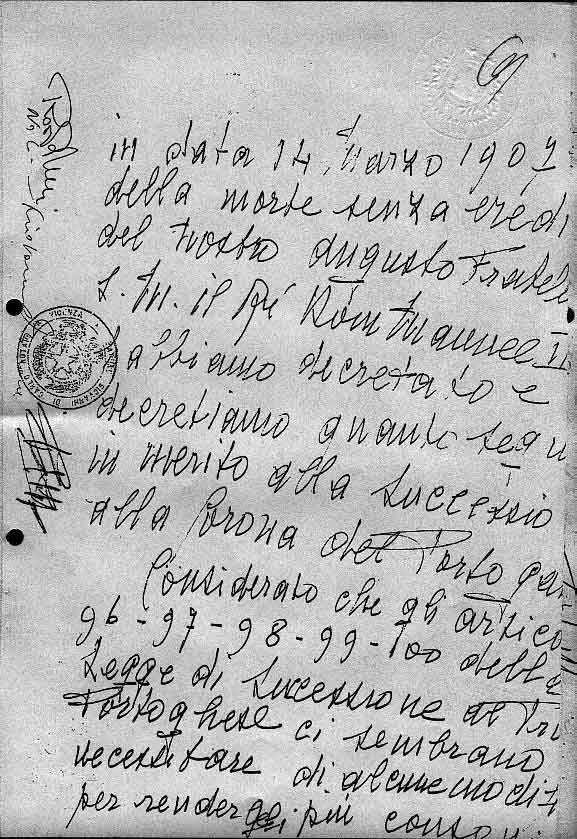 in data 14, Marzo 1907
della morte senza eredi
del Nostro Augusto Fratel
S. M. il Ré Dom Manuel II
abbiamo decretato e
decretiamo quanto segu
in merito alla Successio
alla Corona del Portogal
Considerato che gli artico
96-97-98-99-100 della
Legge di Successione al Tr
Portoghese ci sembrano
necessitare di alcune modi
per rendergli più conso
VICENZA